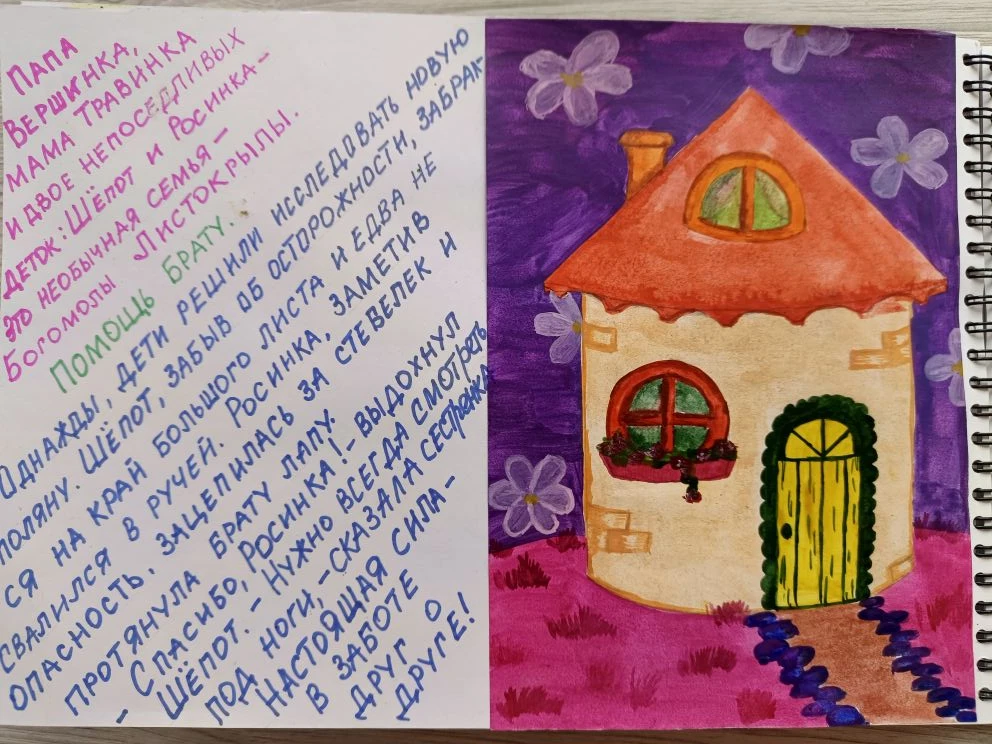 ПАПА
ВЕРШИНКА,
МАМА ТРАВИНКА
И ДВОЕ НЕПОСЕДЛИВЫХ
ДЕТОК: ШЁПОТ И РОСИНКА –
ЭТО НЕОБЫЧНАЯ СЕМЬЯ –
БОГОМОЛЫ ЛИСТОКРЫЛЫ.
ПОМОЩЬ БРАТУ.
ОДНАЖДЫ, ДЕТИ РЕШИЛИ ИССЛЕДОВАТЬ НОВУЮ
ПОЛЯНУ. ШЁПОТ, ЗАБЫВ ОБ ОСТОРОЖНОСТИ, ЗАБРАЛ-
СЯ НА КРАЙ БОЛЬШОГО ЛИСТА И ЕДВА НЕ
СВАЛИЛСЯ В РУЧЕЙ. РОСИНКА, ЗАМЕТИВ
ОПАСНОСТЬ, ЗАЦЕПИЛАСЬ ЗА СТЕБЕЛЕК И
ПРОТЯНУЛА БРАТУ ЛАПУ.
– СПАСИБО, РОСИНКА! – ВЫДОХНУЛ
ШЁПОТ. – НУЖНО ВСЕГДА СМОТРЕТЬ
ПОД НОГИ, – СКАЗАЛА СЕСТРЕНКА
НАСТОЯЩАЯ СИЛА –
В ЗАБОТЕ
ДРУГ О
ДРУГЕ!